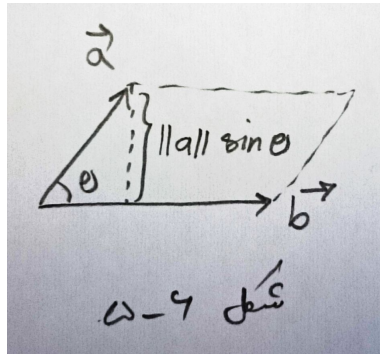 a⃗
||a|| sin θ
θ
b⃗
شکل ۴-۵